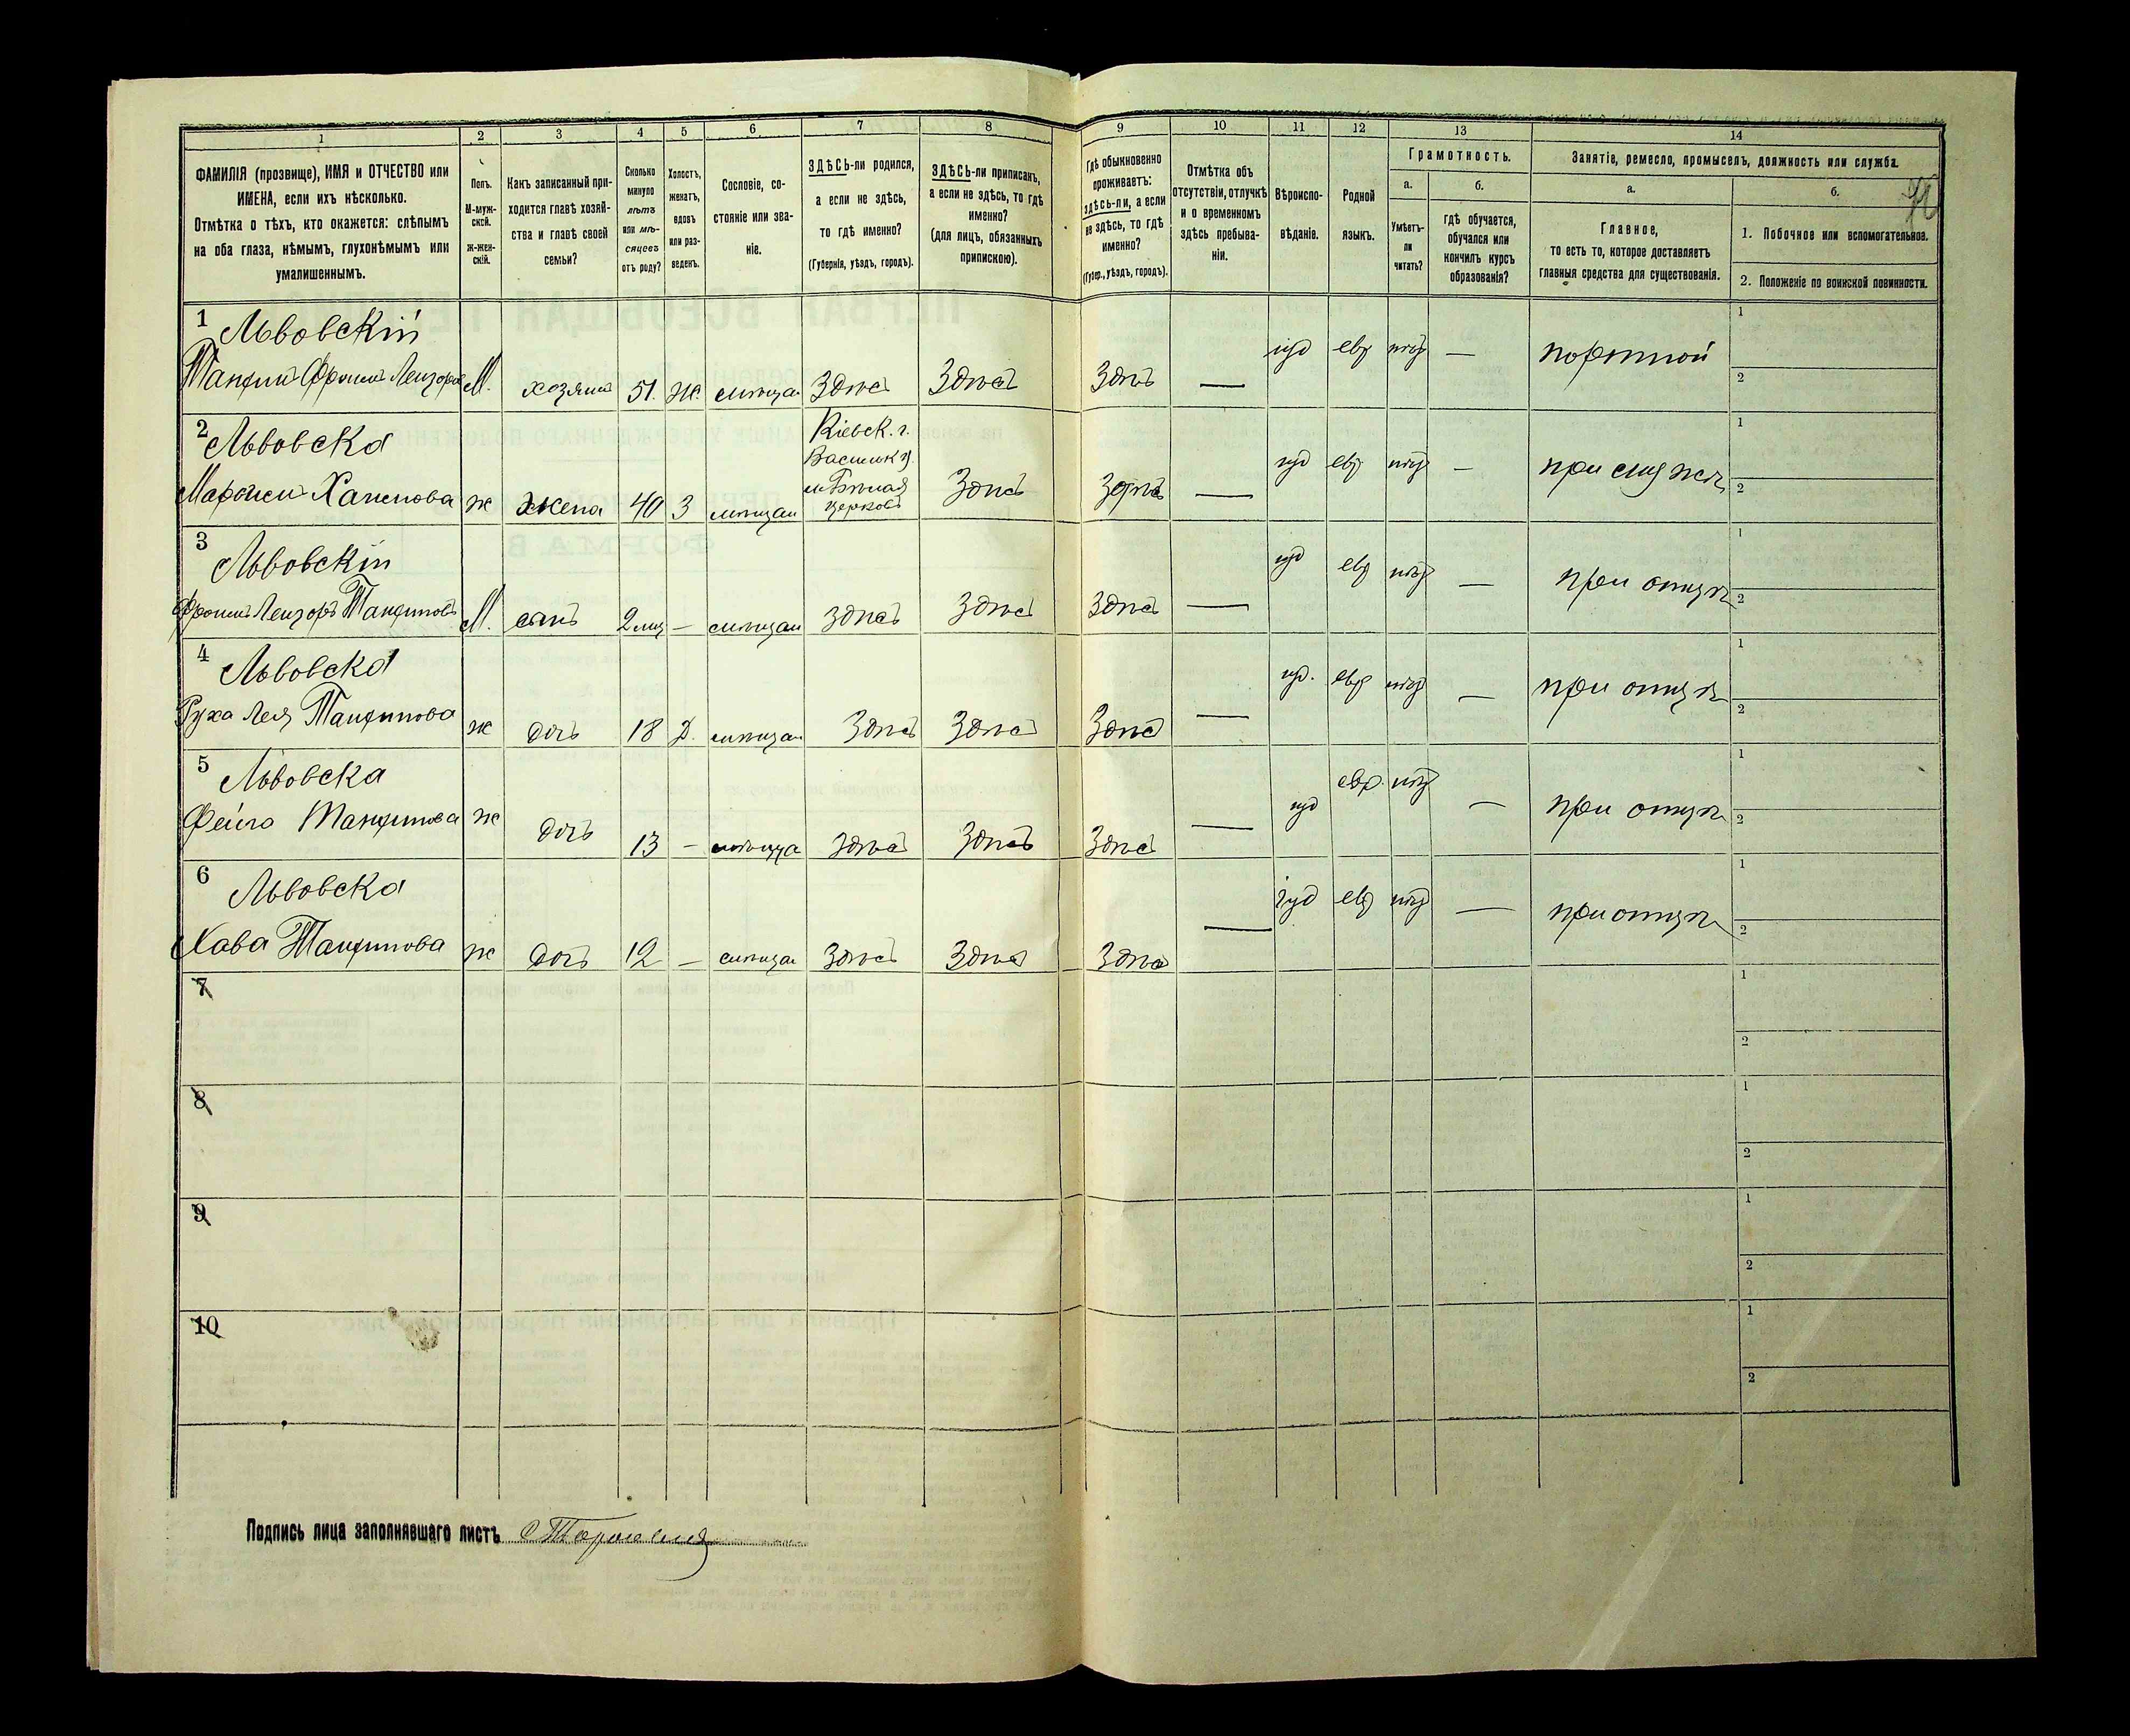 1 2 3 4 5 6 7 8 9 10 11 12 13 14
ФАМИЛІЯ (прозвище), ИМЯ и ОТЧЕСТВО или
ИМЕНА, если ихъ нѣсколько.
Отмѣтка о тѣхъ, кто окажется: слѣпымъ
на оба глаза, нѣмымъ, глухонѣмымъ или
умалишеннымъ.
Полъ.
М-муж-
ской.
ж-жен-
скій.
Какъ записанный при-
ходится главѣ хозяй-
ства и главѣ своей
семьи?
Сколько
минуло
лѣтъ
или мѣ-
сяцевъ
отъ роду?
Холостъ,
женатъ,
вдовъ
или раз-
веденъ.
Сословіе, со-
стояніе или зва-
ніе.
ЗДѢСЬ-ли родился,
а если не здѣсь,
то гдѣ именно?
(Губернія, уѣздъ, городъ).
ЗДѢСЬ-ли приписанъ,
а если не здѣсь, то гдѣ
именно?
(для лицъ, обязанныхъ
припискою).
Гдѣ обыкновенно
проживаетъ:
здѣсь-ли, а если
не здѣсь, то гдѣ
именно?
(Губер., уѣздъ, городъ).
Отмѣтка объ
отсутствіи, отлучкѣ
и о временномъ
здѣсь пребыва-
ніи.
Вѣроиспо-
вѣданіе.
Родной
языкъ.
Грамотность.
а.
Умѣетъ-
ли
читать?
б.
гдѣ обучается,
обучался или
кончилъ курсъ
образованія?
Занятіе, ремесло, промыселъ, должность или служба.
а.
Главное,
то есть то, которое доставляетъ
главныя средства для существованія.
б.
1. Побочное или вспомогательное.
2. Положеніе по воинской повинности.
1 Львовскій
М. хозяинъ 51. Ж. мѣщан Здѣсь Здѣсь Здѣсь — іуд евр — портной 1
2
2 Львовска
ж жена 40 З мѣщан
Кіевск. г.
Васильк у.
м Бѣлая
церковь
Здѣсь Здѣсь — іуд евр — 1
2
3 Львовскій
М. сынъ 2 мѣщан здѣсь Здѣсь Здѣсь — іуд евр — при отцѣ 1
2
4 Львовска
Руха Лея
ж дочь 18 Д. мѣщан Здѣсь Здѣсь Здѣсь — іуд. евр — при отцѣ 1
2
5 Львовска
Фейга
ж дочь 13 — мѣщан Здѣсь Здѣсь Здѣсь — іуд евр. — при отцѣ 1
2
6 Львовска
Хава
ж дочь 12 — мѣщан Здѣсь Здѣсь Здѣсь — іуд евр — при отцѣ 1
2
7 1
2
8 1
2
9 1
2
10 1
2
Подпись лица заполнявшаго листъ